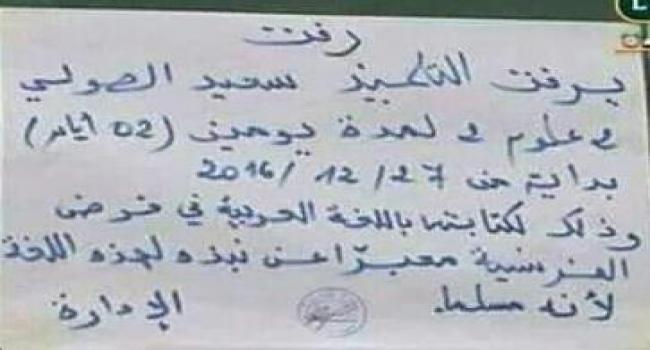 رفت
يرفت التلميذ سعيد الصولي
2 علوم 2 لمدة يومين (02 أيام)
بداية من 27 / 12 / 2016
وذلك لكتابته باللغة العربية في فرض
الفرنسية معبرّا عن نبذه لهذه اللغة
لأنه مسلما.
الإدارة